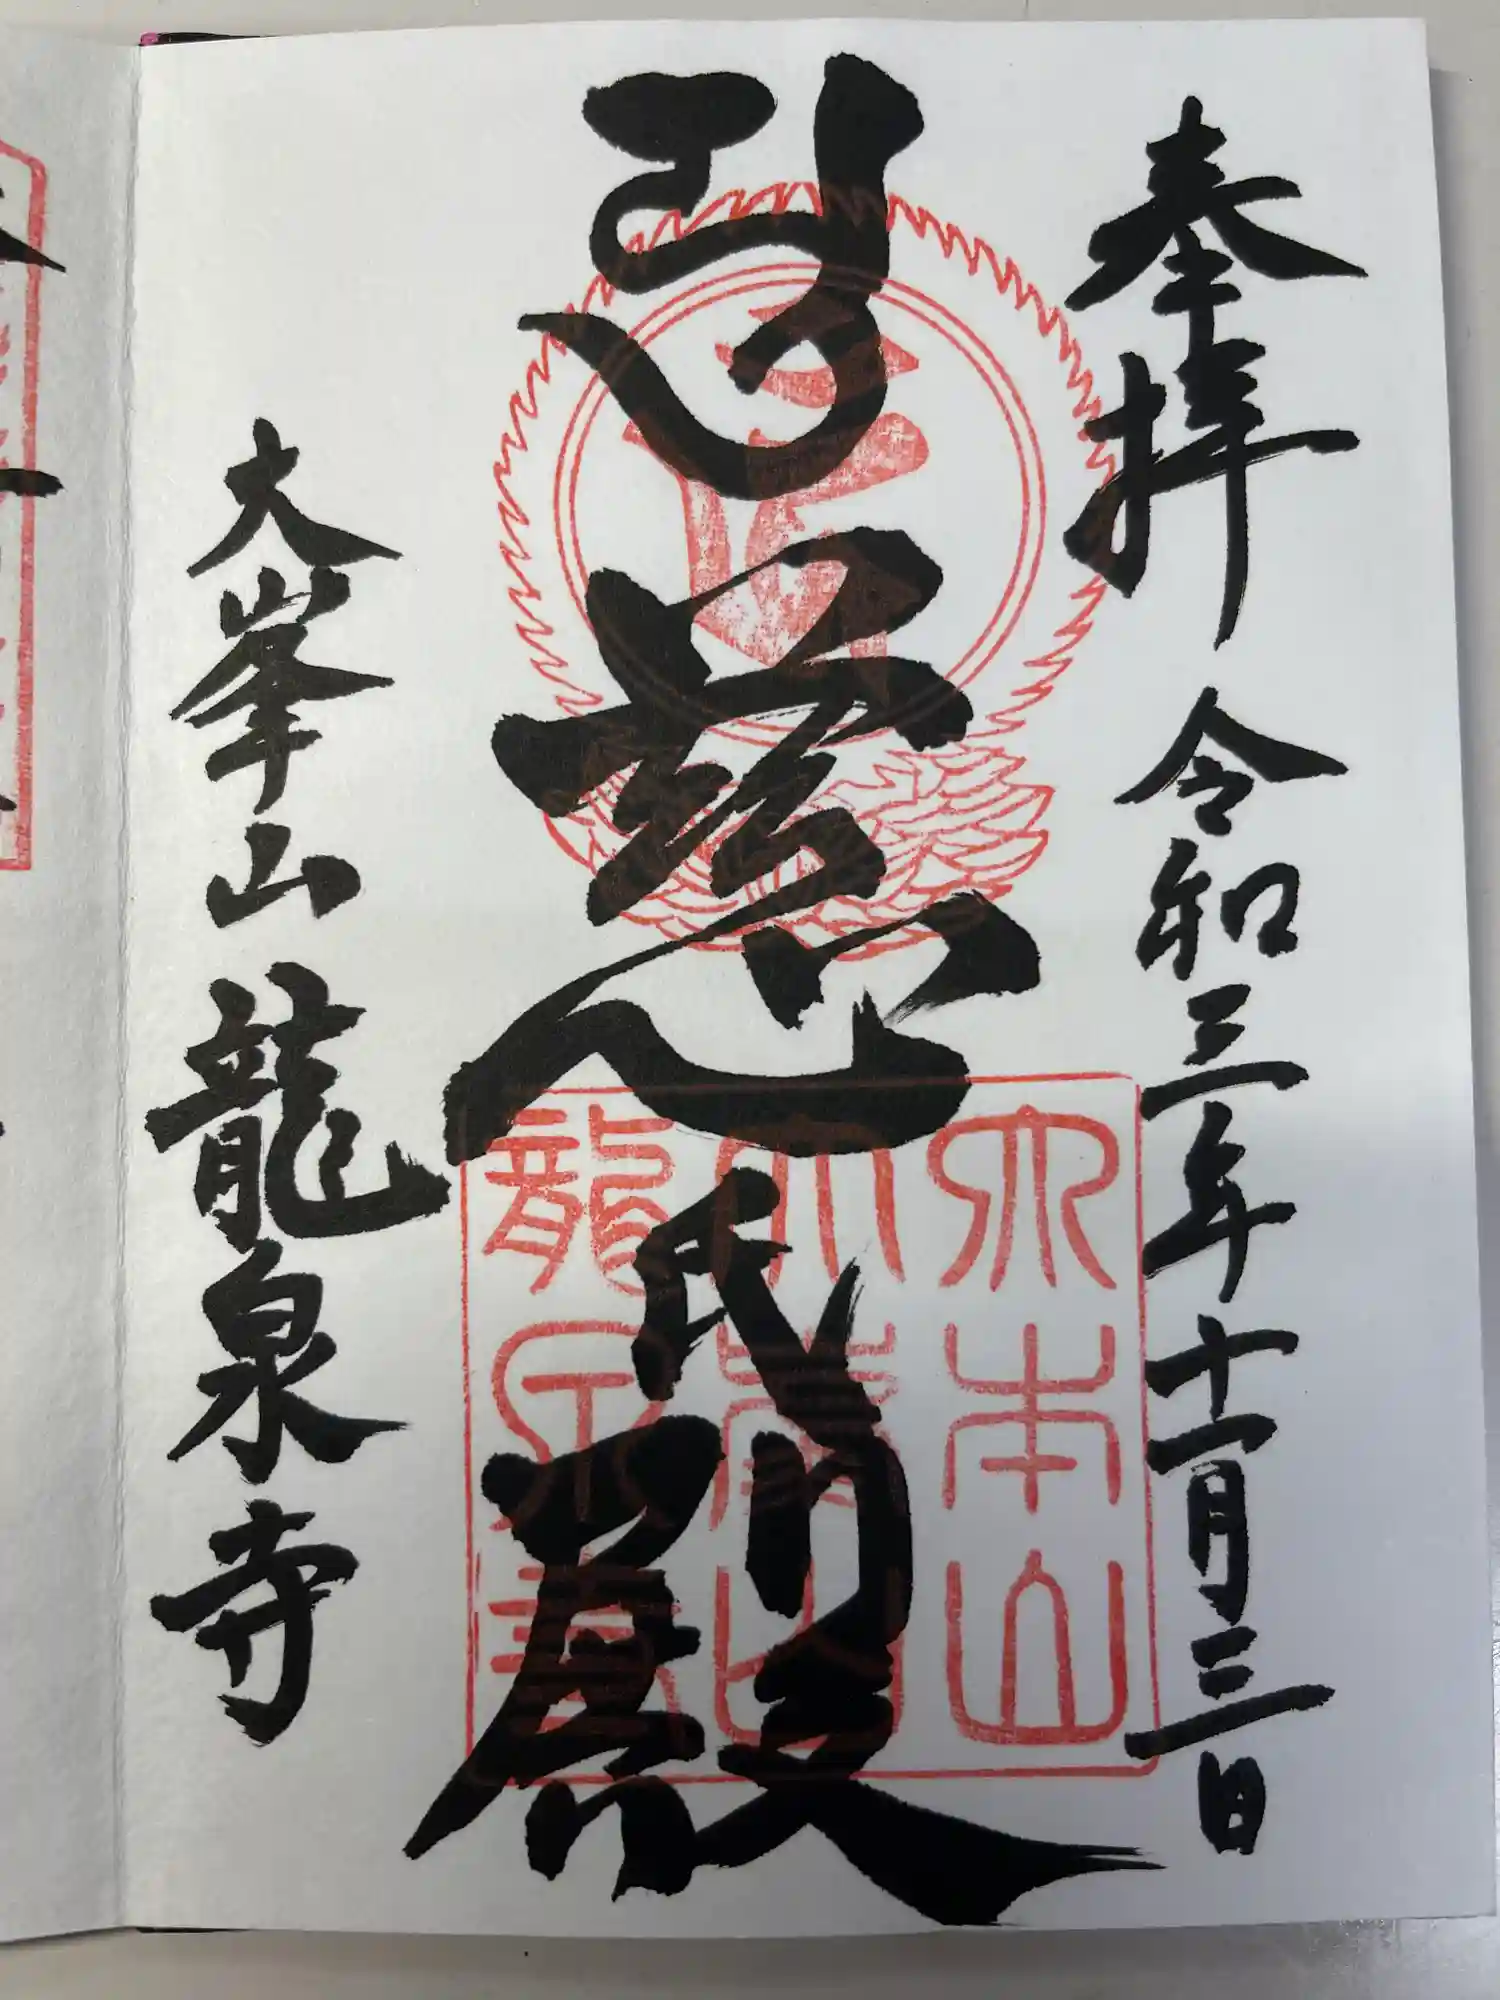 奉拝 令和三年十一月三日
慈氏殿
大峯山 龍泉寺
大本山
大峯山
龍泉寺